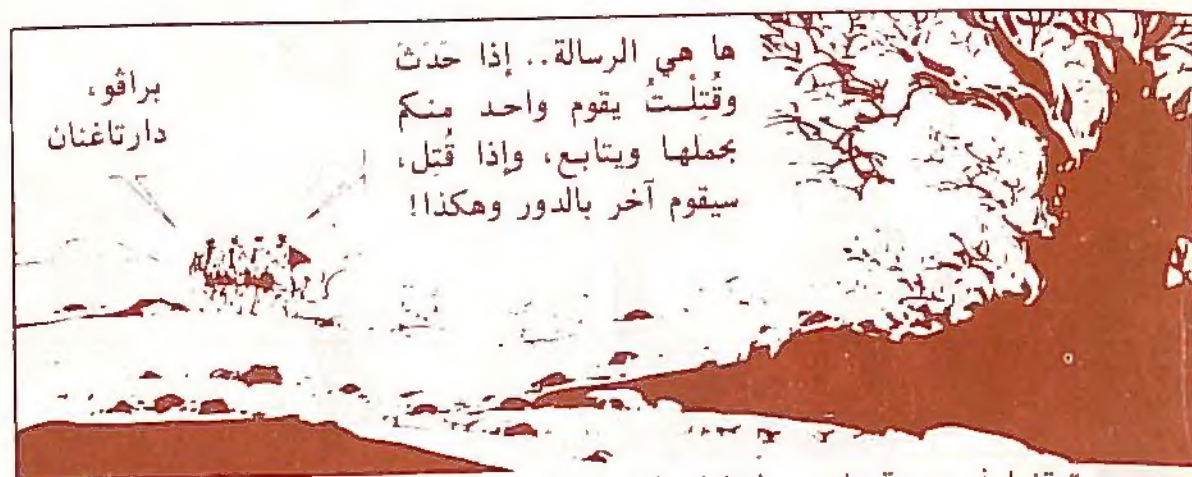 ها هي الرسالة.. إذا حَدَثَ
وقُتِلْتُ يقوم واحد منكم
بحملها ويتابع، وإذا قُتِل،
سيقوم آخر بالدور وهكذا!
براڤو،
دارتاغنان